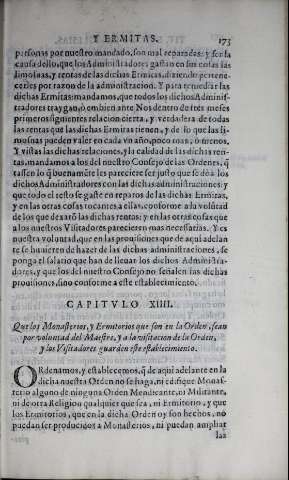 Y ERMITAS. 173
personas por nuestro mandado, son mal reparadas: y ser la
causa dello, que los Administradores, gastan en sus cosas las
limosnas, y rentas de las dichas Ermitas, diziendo pertene-
cerles por razon de la administracion. Y para remediar las
dichas Ermitas: mandamos, que todos los dichos Adminis-
tradores traygan, ò embien ante Nos dentro de tres meses
primeros siguientes relacion cierta, y verdadera de todas
las rentas que las dichas Ermitas tienen, y de lo que las li-
mosnas pueden valer en cada vn año, poco mas, ò menos.
Y vistas las dichas relaciones, y la calidad de las dichas ren-
tas, mandamos a los del nuestro Consejo de las Ordenes, q̃
tassen lo q̃ buenamẽte les pareciere ser justo que se dè a los
dichos Administradores con las dichas administraciones: y
que todo el resto se gaste en reparos de las dichas Ermitas,
y en las otras cosas tocantes a ellas, conforme a la volũtad
de los que dexarõ las dichas rentas: y en las otras cosas que
a los nuestros Visitadores parecieren mas necessarias. Y es
nuestra voluntad, que en las prouisiones que de aqui adelan
te se huuieren de hazer de las dichas administraciones, se
ponga el salario que han de lleuar los dichos Administra-
dores, y que los del nuestro Consejo no señalen las dichas
prouisiones, sino conforme a este establecimiento.
CAPITVLO XIIII.
Que los Monasterios, y Ermitorios que son en la Orden, sean
por voluntad del Maestre, y a la visitacion de la Orden,
y los Visitadores guarden este establecimiento.
ORdenamos, y establecemos, q̃ de aqui adelante en la
dicha nuestra Orden no se haga, ni edifique Monas-
terio alguno de ninguna Orden Mendicante, ni Militante,
ni de otra Religion qualquier que sea, ni Ermitorio, y que
los Ermitorios, que en la dicha Orden oy son hechos, no
puedan ser producidos a Monasterios, ni puedan ampliar